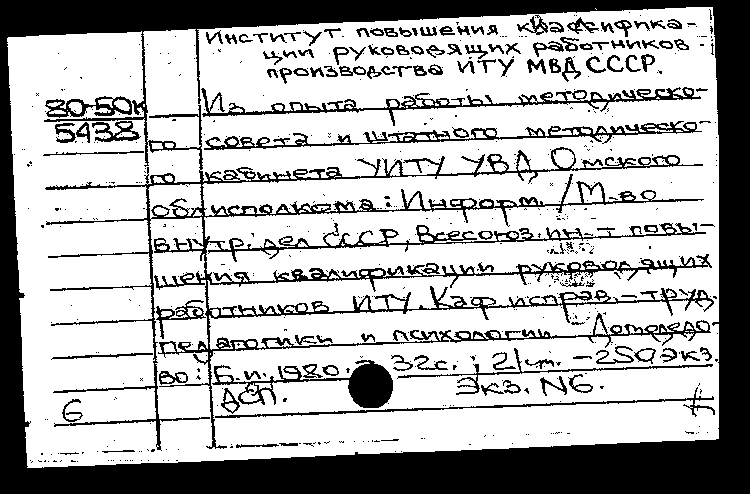 Институт повышения квалифика-
ции руководящих работников
производства ИТУ МВД СССР.
80-50к
5438
Из опыта работы методическо-
го совета и штатного методическо-
го кабинета УИТУ УВД Омского
облисполкома: Информ. / М-во
внутр. дел СССР, Всесоюз. ин-т повы-
шения квалификации руководящих
работников ИТУ. Каф. исправ.-труд.
педагогики и психологии. Домодедо-
во: Б.и., 1980. - 32с.; 21см. - 250экз.
ДСП. Экз. N6.
6